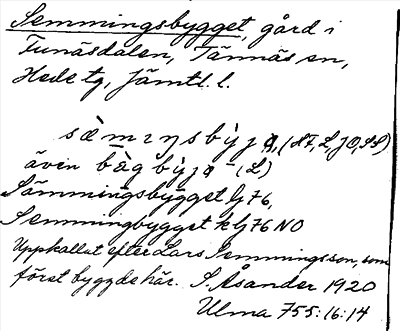 Semmingsbygget, gård i
Funäsdalen, Tännäs sn,
Hede tg, Jämtl. l.
sæ̀mıŋsbỳjǝ, (AF, L, JO, SS)
även bägbỳjǝ (L)
Sämmingsbygget Gj 76,
Semmingbygget k Gj 76 NO
Uppkallat efter Lars Semmingsson, som
först byggde här. S. Åsander 1920
Ulma 755:16:14